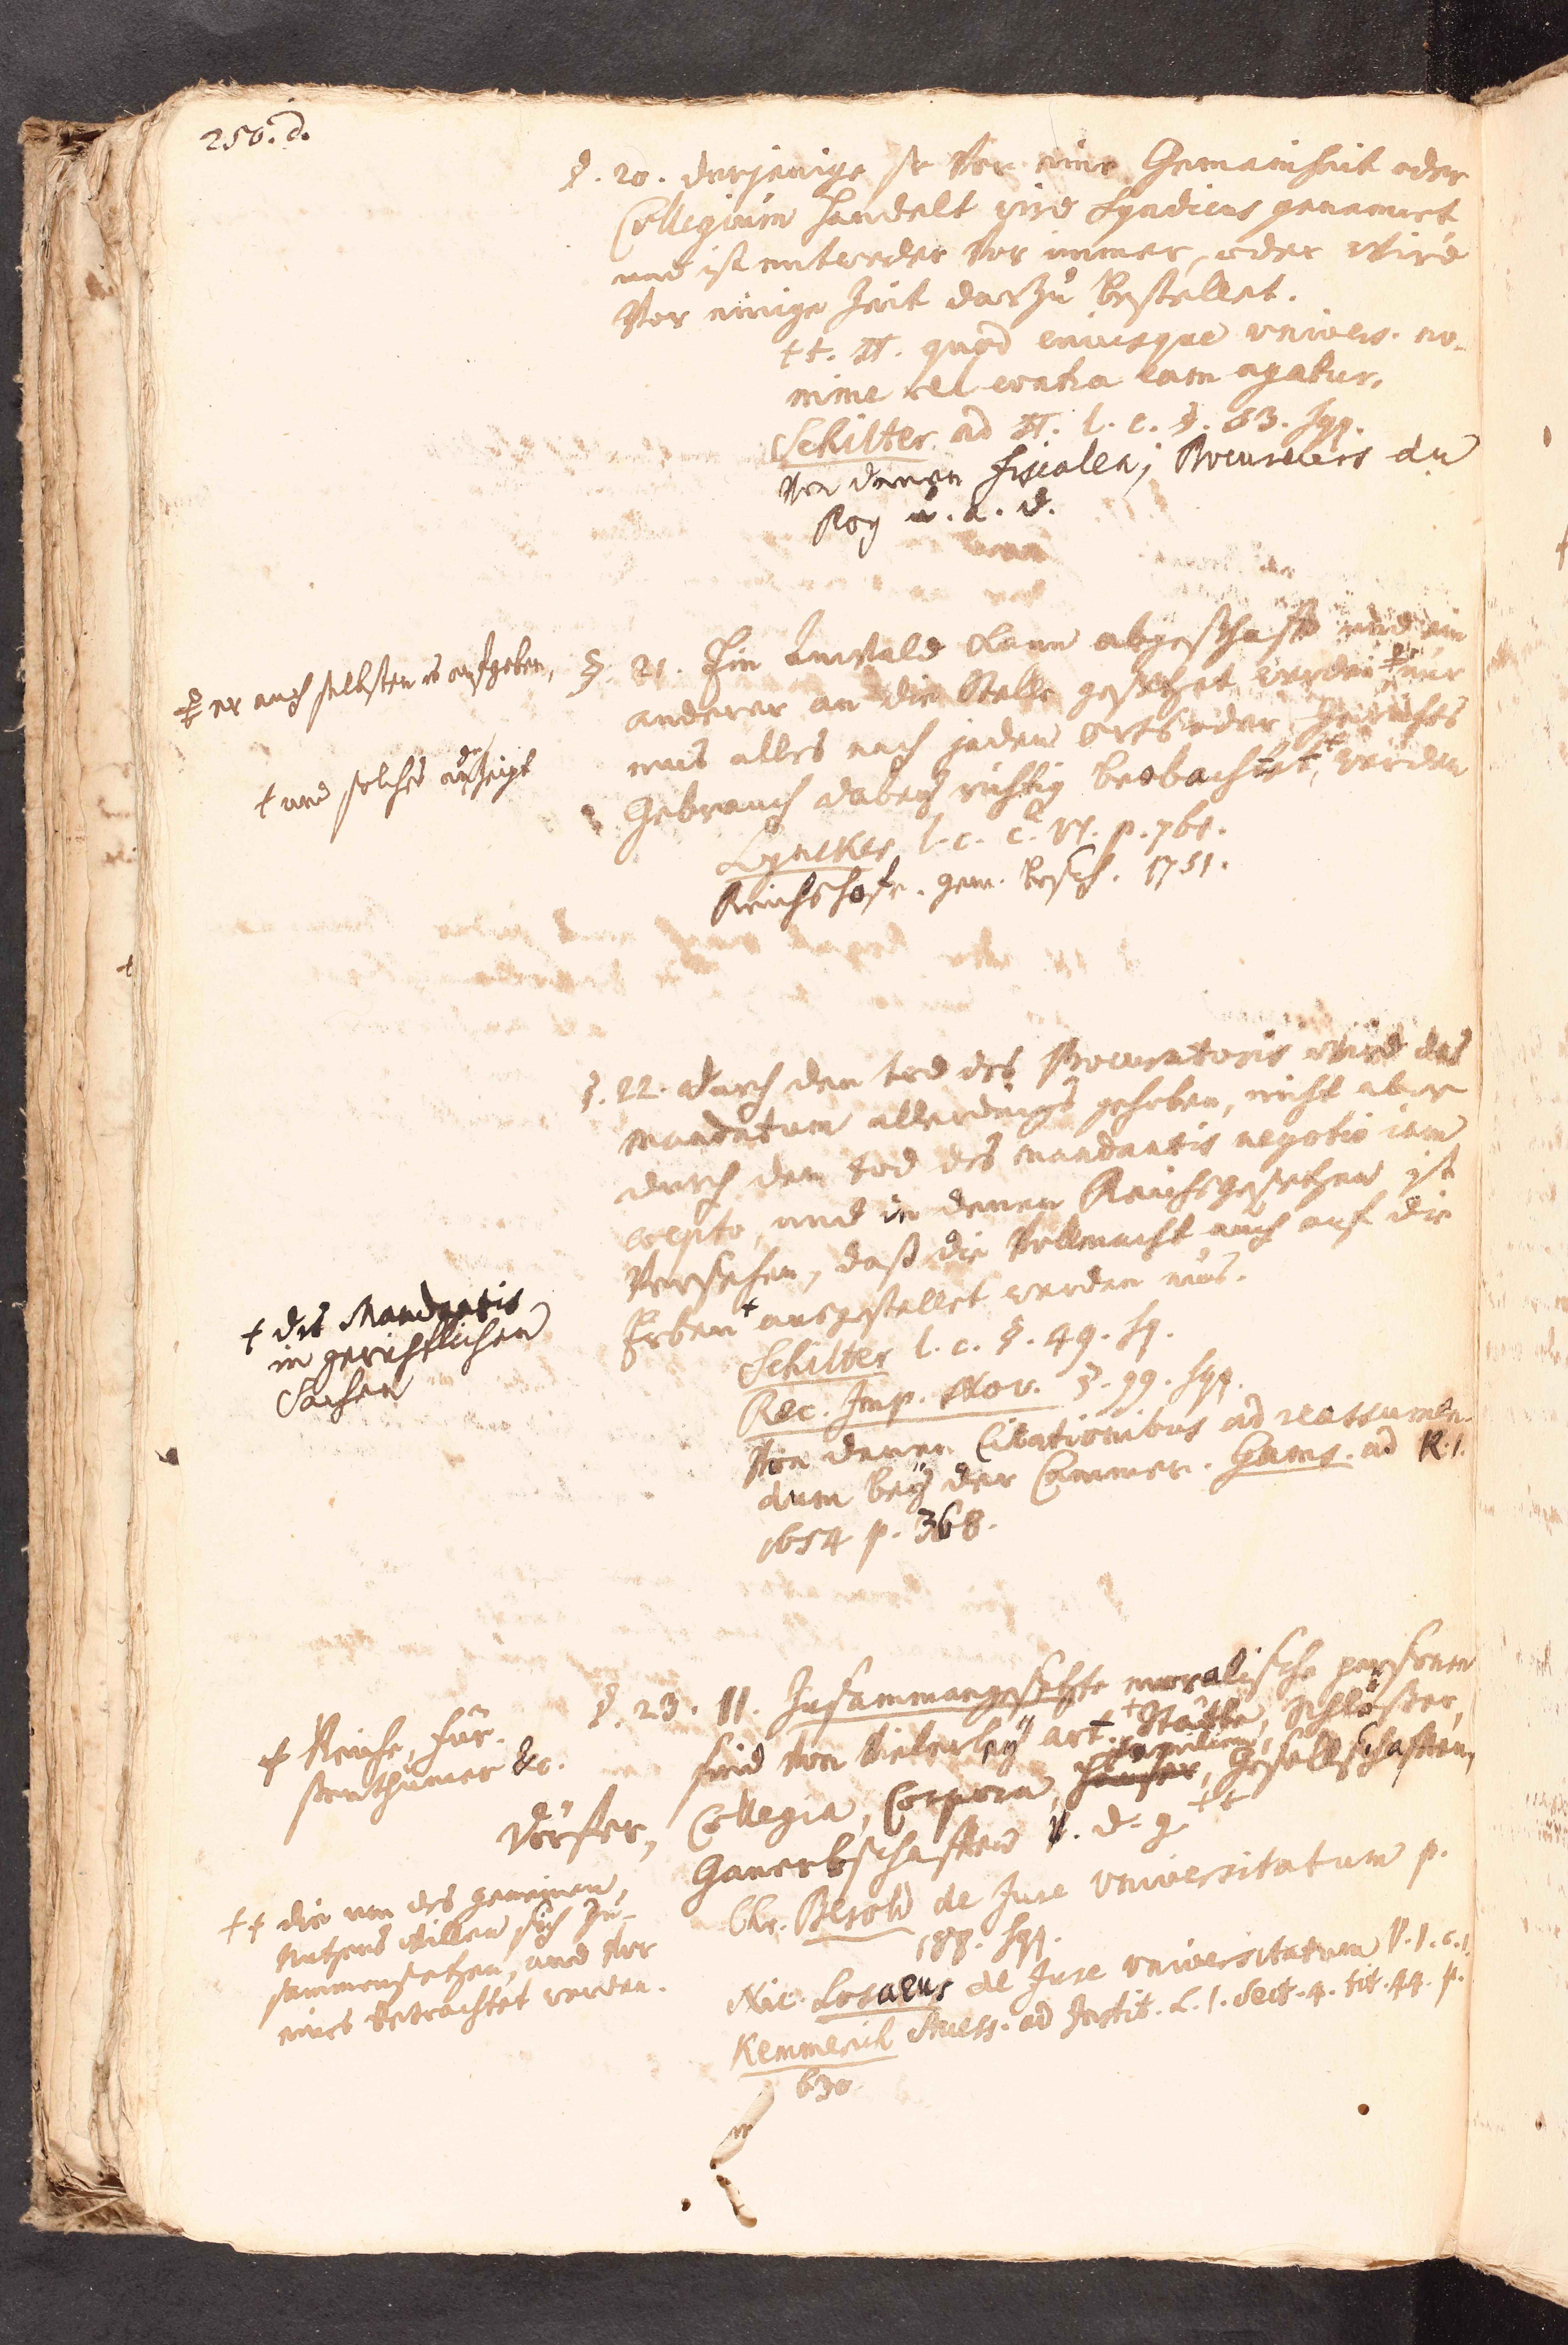 250. d.
§. 20. derjenige so vor eine Gemeinheit oder
Collegium handelt wird Syndicus genannt
und ist entweder vor immer, oder wird
vor einige Zeit darzu bestellet.
tt. π. quod cuiusque univers. no-
mine vel contra eam agatur.
Schilter ad π. l. c. §. 53. sqq.
von denen Fiscalen, Procureurs du
Roy u. a. d.
§. 21. Ein Anwald kann abgeschafft und ein
anderer an die Stelle gesetzet werden nur
mus alles nach jedem Orts oder Gerichts
Gebrauch dabey richtig beobachtet, werden
er auch selbsten es aufgeben,
† und solches anzeigt
Lyncker l. c. c. VI. p. 761.
Reichshofr. gem. Besch. 1751.
§. 22. durch den tod des Procuratoris wird das
Mandatum allerdings gehoben, nicht aber
durch den tod des mandantis negotio iam
coepto, und in denen Reichsgesetzen ist
versehen, daß die Vollmacht auch auf die
Erben † ausgestellet werden mus.
† des Mandantis
in gerichtlichen
Sachen
Schilter l. c. §. 49. sq.
Rec. Imp. Nov. §. 99. sqq.
von denen Citationibus ad reassumen-
dum bey der Cammer. Gams. ad R. I.
1654 p. 368.
§. 23. II. Zusammengesetzte moralische persohnen
sind von vielerley art. † Städte, Schlößer,
Collegia, Corpora, Familien, Gesellschaften,
Ganerbschaften u. d. g. ††
† Reiche, Für-
stenthümer &c.
Dörfer,
†† die um des gemeinen
Nutzens willen sich zu-
sammensetzen, und vor
eines betrachtet werden.
Chr. Besold de Jure Universitatum p.
188. sqq.
Nic. Losaeus de Jure universitatum P. 1. c. 1.
Kemmerich ad Instit. L. 1. Sect. 4. tit. 44. p.
630.